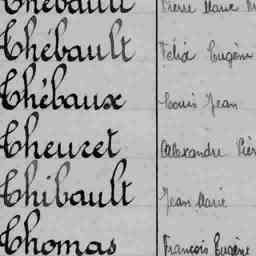 Thébault Pierre Marie
Thébault Félix Eugène
Thébaux Louis Jean
Theuret Alexandre
Thibault Jean Marie
Thomas François Eugène